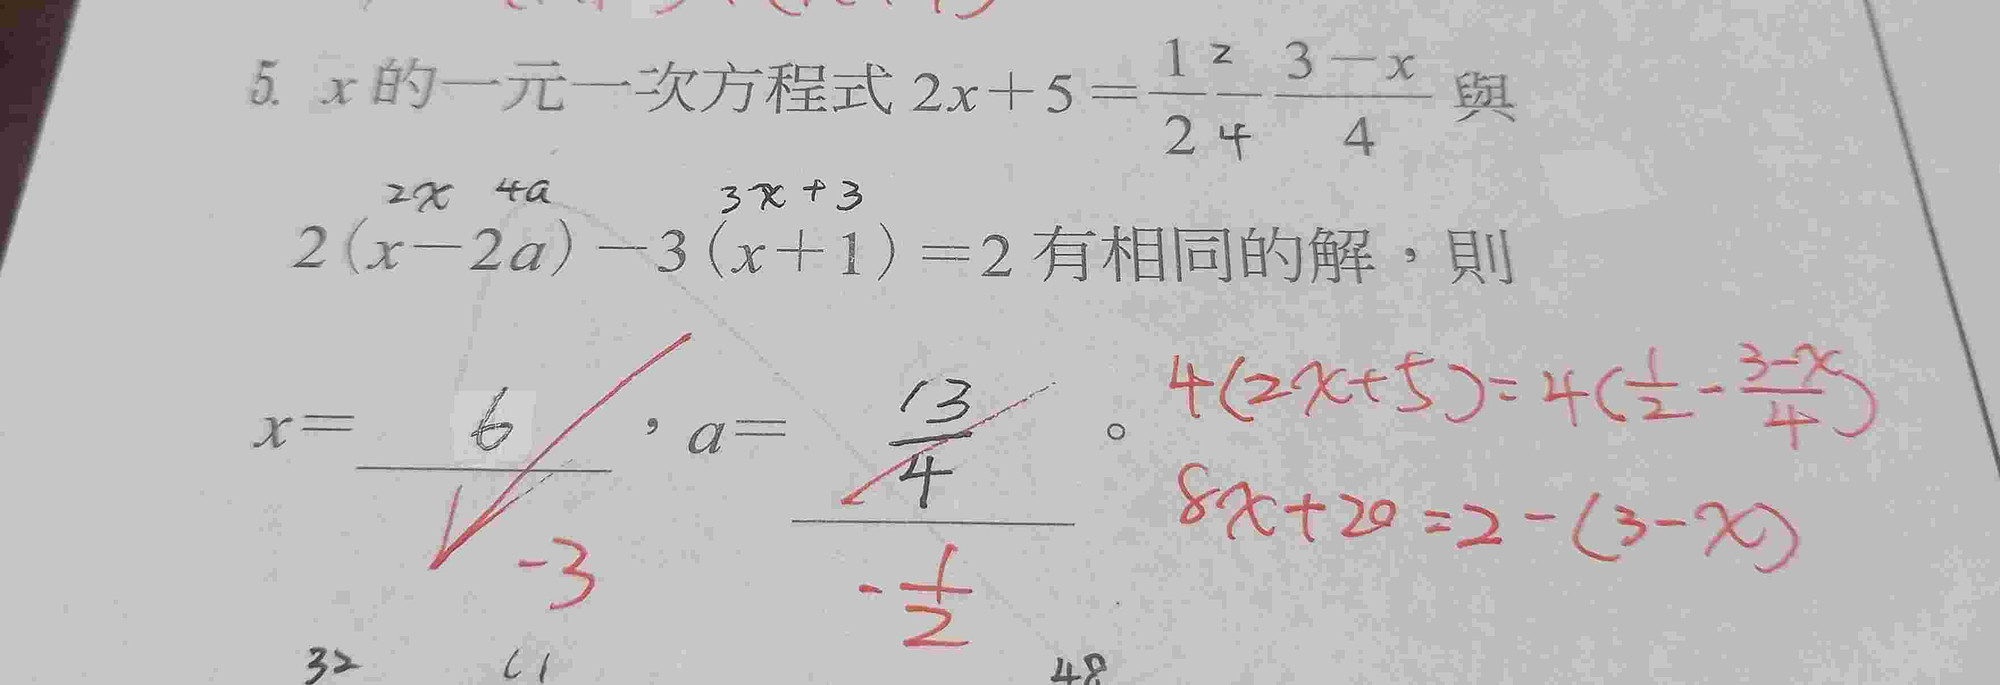 5. x的一元一次方程式 2x+5=1/2 - (3-x)/4 與
2 4
2x 4a 3x+3
2(x-2a)-3(x+1)=2 有相同的解，則
x= 6 ，a= 13/4 。
4(2x+5)=4(1/2-(3-x)/4)
8x+20=2-(3-x)
-3
-1/2
32 48